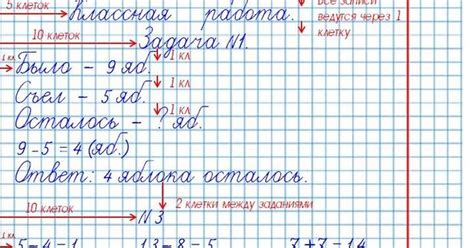 5 клеток Классная работа. Все записи
ведутся через 1
клетку
10 клеток Задача №1.
1 кл Было - 9 яб. 1 кл
Съел - 5 яб. 1 кл
Осталось - ? яб.
9 - 5 = 4 (яб.)
Ответ: 4 яблока осталось.
2 клетки между заданиями
10 клеток №3
1 кл 5 - 4 = 1 13 - 8 = 5 7 + 7 = 14